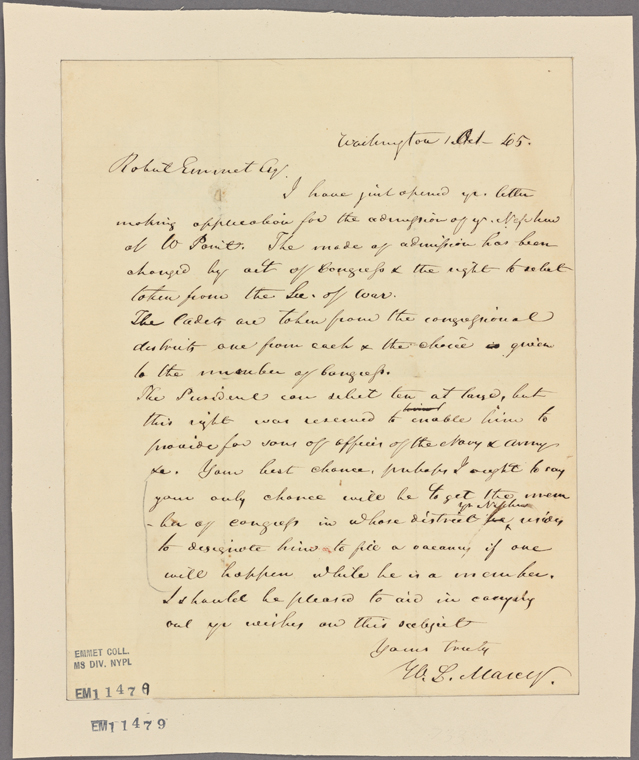 Washington 1 Oct - 45.
Robert Emmet Esq.
I have just opened yr. letter
making application for the admission of yr. Nephew
at W Point. The mode of admission has been
changed by act of Congress & the right to select
taken from the Sec. of War.
The Cadets are taken from the congressional
districts one from each & the choice is given
to the member of Congress.
The President can select ten at large, but
this right was reserved to enable him to
provide for sons of officers of the Navy & Army
&c. Your best chance, perhaps I ought to say
your only chance will be to get the mem
-ber of congress in whose district yr Nephew resides
to designate him to fill a vacancy if one
will happen while he is a member.
I should be pleased to aid in carrying
out yr wishes on this subject
Yours truly
W. L. Marcy.
EMMET COLL.
MS DIV. NYPL
EM11479
EM11479